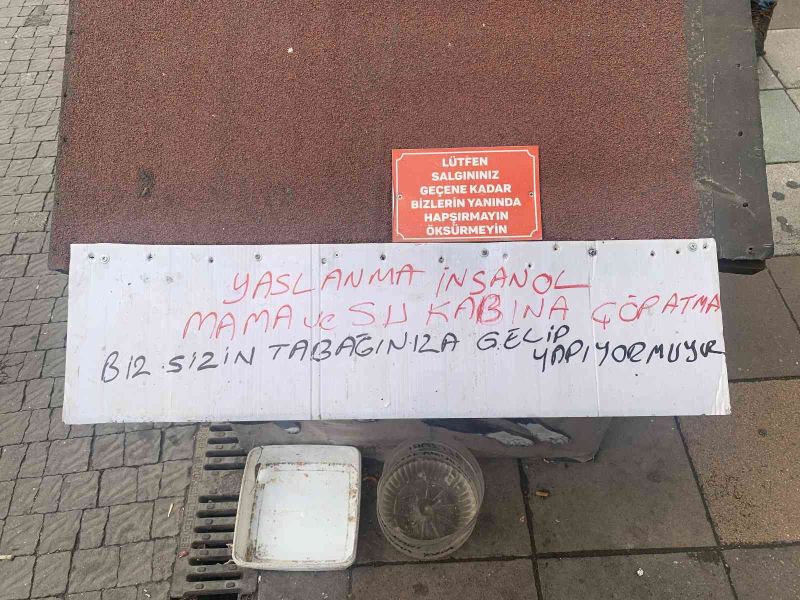 LÜTFEN
SALGININIZ
GEÇENE KADAR
BİZLERİN YANINDA
HAPŞIRMAYIN
ÖKSÜRMEYİN
YASLANMA İNSANOL
MAMA ve SU KABINA ÇÖP ATMA
BIZ SİZİN TABAĞINIZA GELİP
YAPIYORMUYUZ